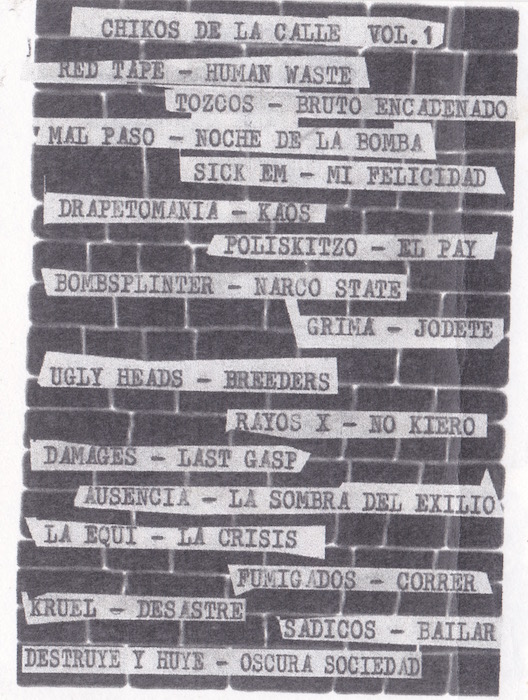 CHIKOS DE LA CALLE VOL.1
RED TAPE - HUMAN WASTE
TOZCOS - BRUTO ENCADENADO
MAL PASO - NOCHE DE LA BOMBA
SICK EM - MI FELICIDAD
DRAPETOMANIA - KAOS
POLISKITZO - EL PAY
BOMBSPLINTER - NARCO STATE
GRIMA - JODETE
UGLY HEADS - BREEDERS
RAYOS X - NO KIERO
DAMAGES - LAST GASP
AUSENCIA - LA SOMBRA DEL EXILIO
LA EQUI - LA CRISIS
FUMIGADOS - CORRER
KRUEL - DESASTRE
SADICOS - BAILAR
DESTRUYE Y HUYE - OSCURA SOCIEDAD